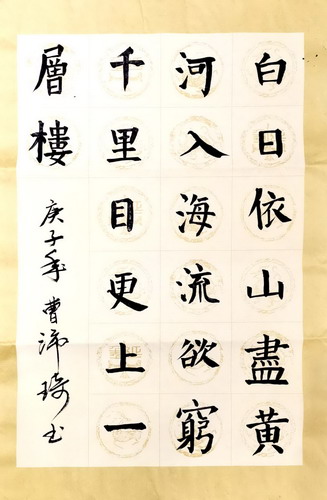 白日依山盡黄
河入海流欲窮
千里目更上一
層樓
庚子年曹沛琦书